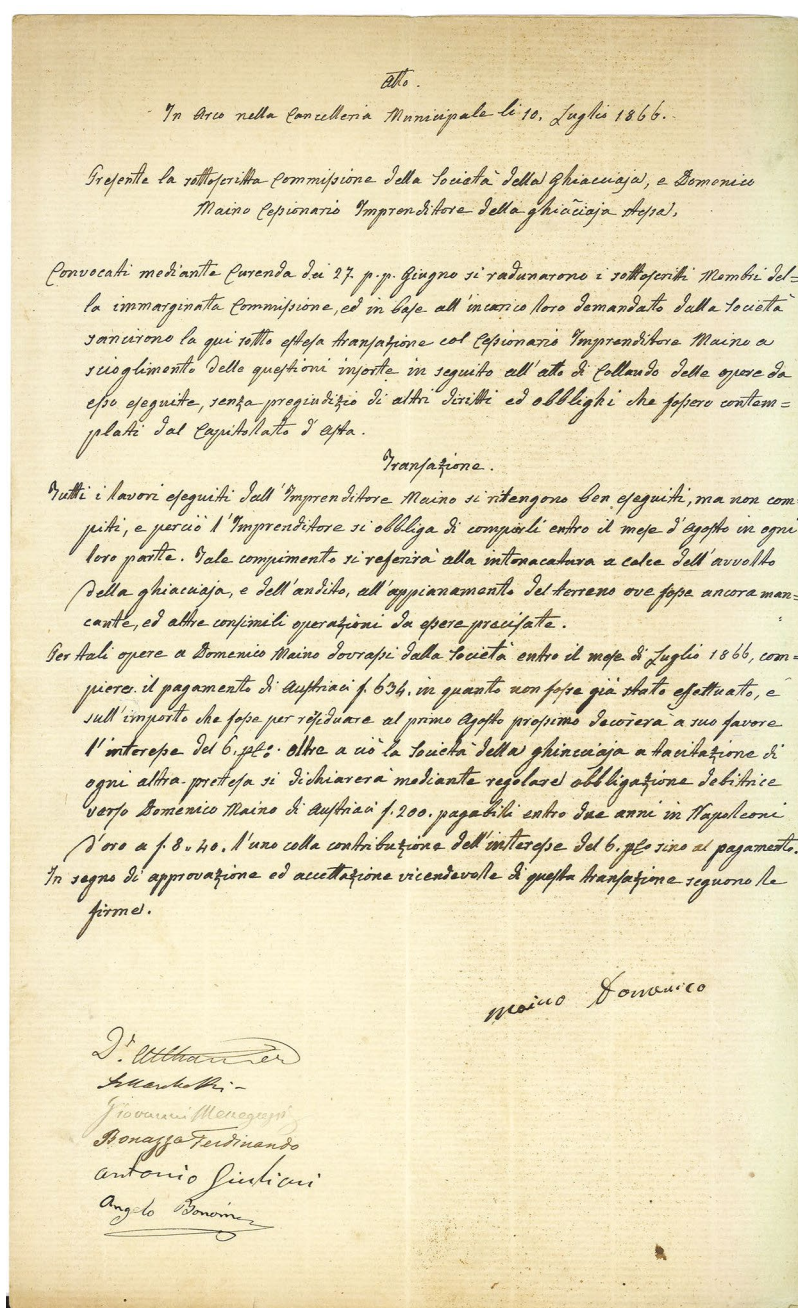 Atto.
In Arco nella Cancelleria Municipale li 10. Luglio 1866.
Presente la sottoscritta Commissione della Società della Ghiacciaja, e Domenico
Maino Cessionario Imprenditore della ghiacciaja stessa,
Convocati mediante Curenda dei 27 p. p. Giugno si radunarono i sottoscritti Membri del=
la immarginata Commissione, ed in base all'incarico loro demandato dalla Società
sancirono la qui sotto estesa transazione col Cessionario Imprenditore Maino a
scioglimento delle questioni insorte in seguito all'atto di Collaudo delle opere da
esso eseguite, senza pregiudizio di altri diritti ed obblighi che fossero contem=
plati dal Capitolato d'Asta.
Transazione.
Tutti i lavori eseguiti dall'Imprenditore Maino si ritengono ben eseguiti, ma non com
piti, e perciò l'Imprenditore si obbliga di compirli entro il mese d'Agosto in ogni
loro parte. Tale compimento si referirà alla intonacatura a calce dell'avvolto
della ghiacciaja, e dell'andito, all'appianamento del terreno ove fosse ancora man=
cante, ed altre consimili operazioni da essere precisate.
Per tali opere a Domenico Maino dovrassi dalla Società entro il mese di Luglio 1866, com=
piere il pagamento di Austriaci f. 634. in quanto non fosse già stato effettuato, e
sull'importo che fosse per residuare al primo Agosto prossimo decorerà a suo favore
l'interesse del 6. pCo. Oltre a ciò la Società della ghiacciaja a tacitazione di
ogni altra pretesa si dichiarerà mediante regolare obbligazione debitrice
verso Domenico Maino di Austriaci f. 200. pagabili entro due anni in Napoleoni
d'oro a f. 8.40. l'uno colla contribuzione dell'interesse del 6. pCo sino al pagamento.
In segno di approvazione ed accettazione vicendevole di questa transazione seguono le
firme.
Maino Domenico
Dr.
Giovanni Menegazzi
Bonazza Ferdinando
Antonio Giuliani
Angelo